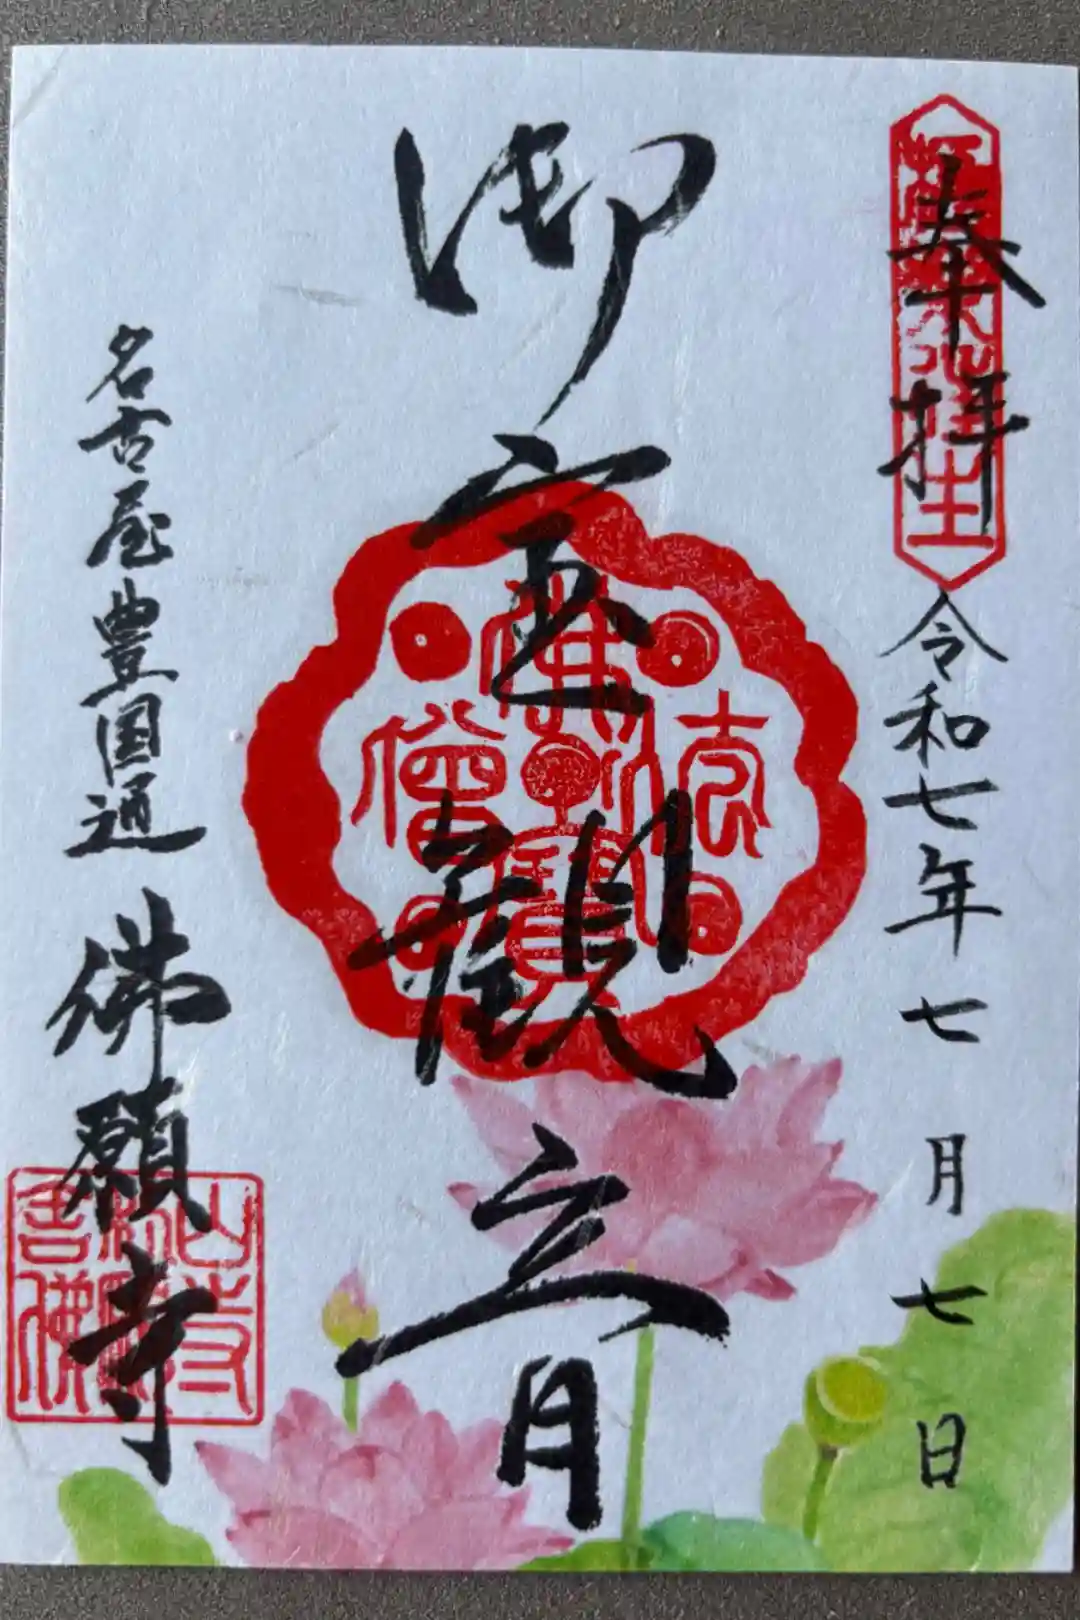 奉拝
令和七年七月七日
御
観音
佛法僧寳
名古屋豊国通 佛願寺